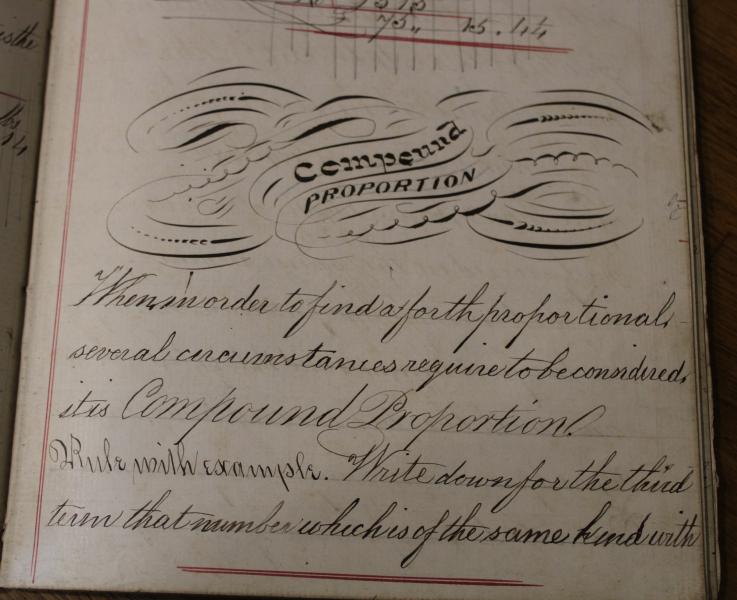 75„ 15.44
Compound
PROPORTION
When, in order to find a forth proportional,
several circumstances require to be considired,
it is Compound Proportion.
Rule with example. Write down for the third
term that number which is of the same kind with